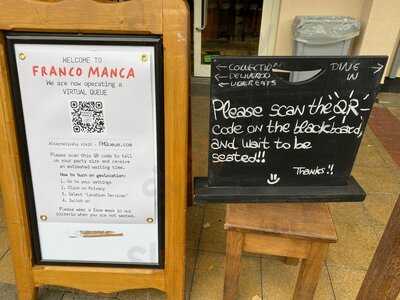 WELCOME TO
FRANCO MANCA
We are now operating a
VIRTUAL QUEUE
Alternatively visit - FMQueue.com
Please scan this QR code to tell
us your party size and receive
an estimated waiting time.
How to turn on geolocation:
1. Go to your settings
2. Click on Privacy
3. Select "Location Services"
4. Switch on
Please wear a face mask in our
pizzeria when you are not seated.
←COLLECTION
←DELIVEROO
←UBER EATS
DINE →
IN
Please scan the QR
code on the blackboard,
and wait to be
seated!!
Thanks!!